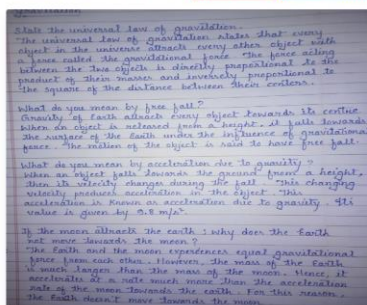 Gravitation
State the universal law of gravitation.
The universal law of gravitation states that every
object in the universe attracts every other object with
a force called the gravitational force. The force acting
between the two objects is directly proportional to the
product of their masses and inversely proportional to
the square of the distance between their centers.
What do you mean by free fall?
Gravity of Earth attracts every object towards its centre
When an object is released from a height, it falls towards
the surface of the Earth under the influence of gravitational
force. The motion of the object is said to have free fall.
What do you mean by acceleration due to gravity?
When an object falls towards the ground from a height,
then its velocity changes during the fall. This changing
velocity produces acceleration in the object. This
acceleration is known as acceleration due to gravity. Its
value is given by 9.8 m/s².
If the moon attracts the earth, why does the Earth
not move towards the moon?
The Earth and the moon experiences equal gravitational
force from each other. However, the mass of the Earth
is much larger than the mass of the moon. Hence, it
accelerates at a rate much more than the acceleration
rate of the moon towards the earth. For this reason
the Earth doesn't move towards the moon